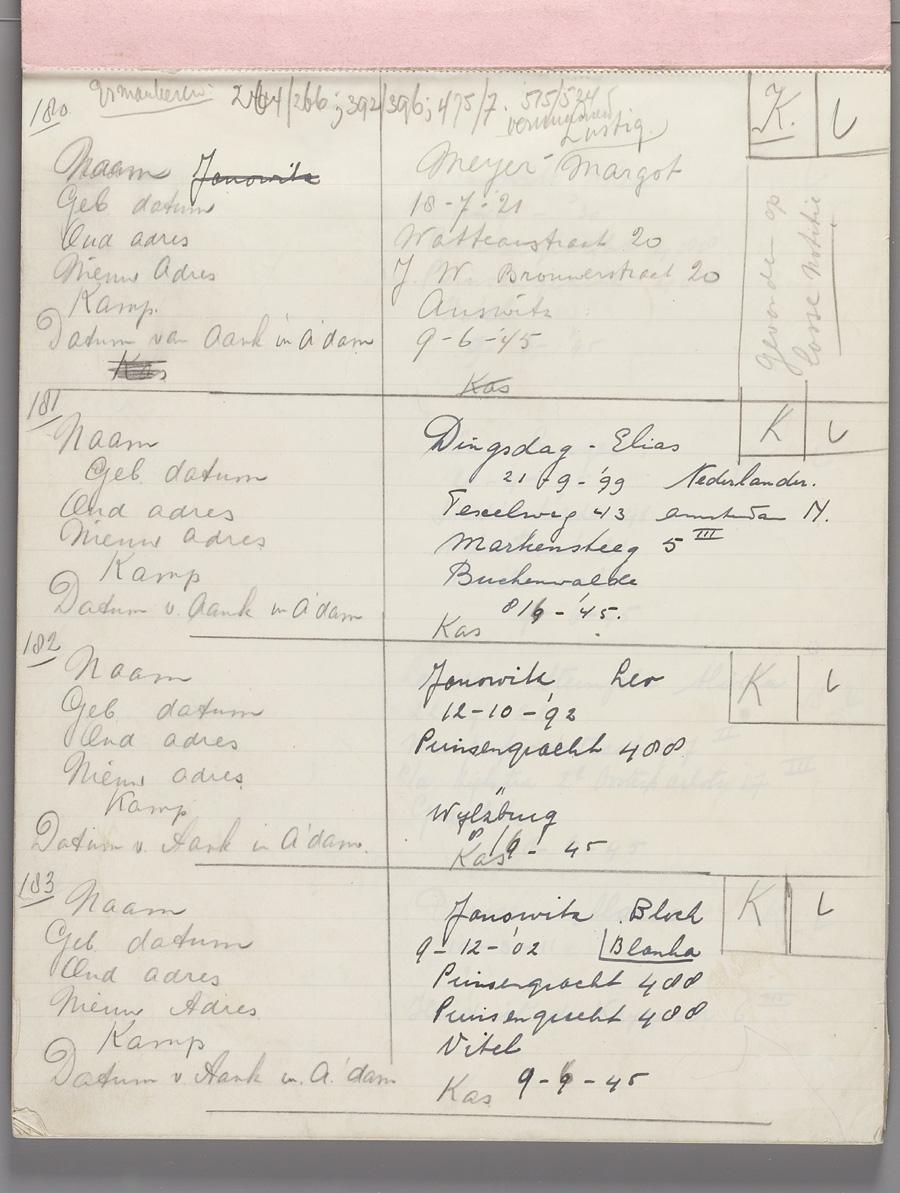 180 264/266; 392/396; 475/7. 515/524
Lustig. K. L
Naam Janowitz Meyer - Margot
Geb datum 18-7-21
Oud adres Watteaustraat 20
Nieuw Adres J. W. Brouwerstraat 20
Kamp. Auswitz
Datum van Aank in A'dam 9-6-'45
Kas Kas
Gevonden op
losse notitie
181 K L
Naam Dingsdag - Elias
Geb. datum 21-9-'99 Nederlander.
Oud adres Texelweg 43 Amsterdam N.
Nieuw adres Markensteeg 5 III
Kamp Buchenwalde
Datum v. Aank in A'dam 8/6-'45.
Kas
182 K L
Naam Janowitz Leo
Geb datum 12-10-'92
Oud adres Prinsengracht 488
Nieuw adres
Kamp Wylzburg
Datum v. Aank in A'dam. 8/6- 45
Kas
183 K L
Naam Janowitz Bloch
Geb datum 9-12-'02 Blanka
Oud adres Prinsengracht 488
Nieuw Adres Prinsengracht 488
Kamp Vitel
Datum v Aank in A'dam 9-6-45
Kas